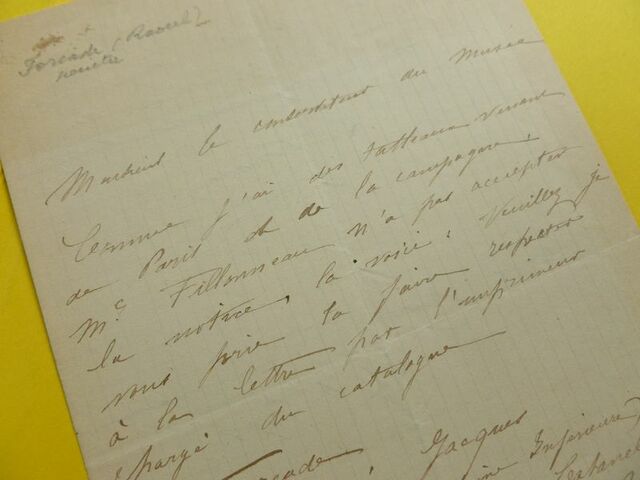 Forcade (Raoul)
peintre
Monsieur le conservateur du Musée
Comme j'ai des tableaux venant
de Paris et de la campagne,
Mc Fillonneau n'a pas accepter
la notice, la voici : Veuillez je
vous prie la faire respecter
à la lettre par l'imprimeur
chargé du catalogue
Forcade, Jacques
Inférieure)